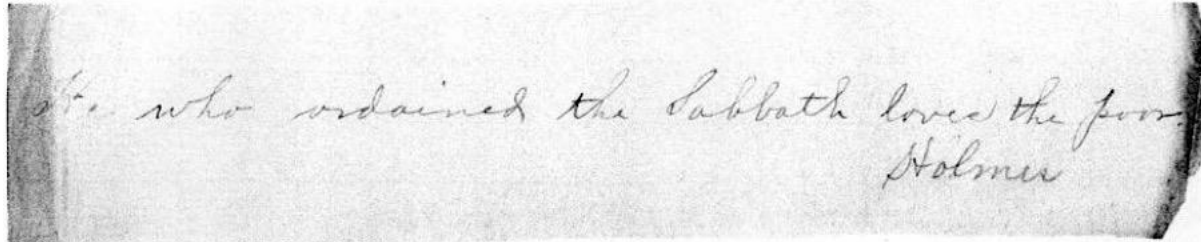 He who ordained the Sabbath loves the poor.
Holmes